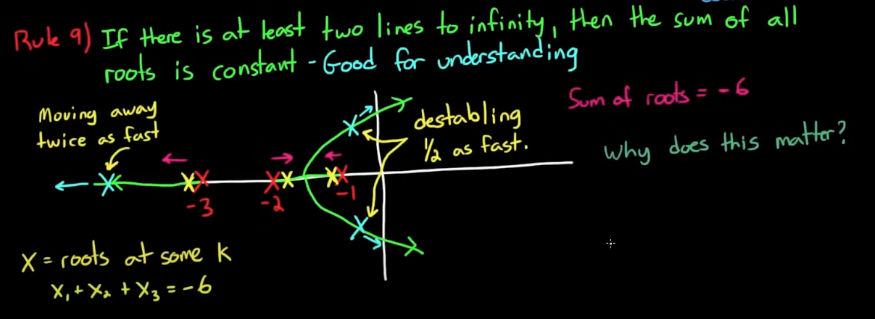 Rule 9) If there is at least two lines to infinity, then the sum of all
roots is constant - Good for understanding
Moving away
twice as fast
destabling
1/2 as fast.
Sum of roots = -6
Why does this matter?
-3
-2
-1
X = roots at some k
X₁ + X₂ + X₃ = -6